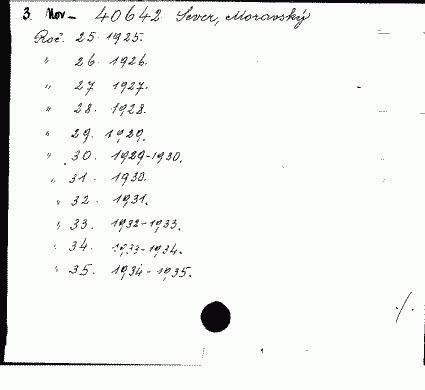 3. Nov- 40642 Sever, Moravský
Roč. 25. 1925.
" 26. 1926.
" 27 1927.
" 28. 1928.
" 29. 1929.
" 30. 1929-1930.
" 31. 1930.
" 32. 1931.
" 33. 1932-1933.
" 34. 1933-1934.
" 35. 1934-1935.
/.